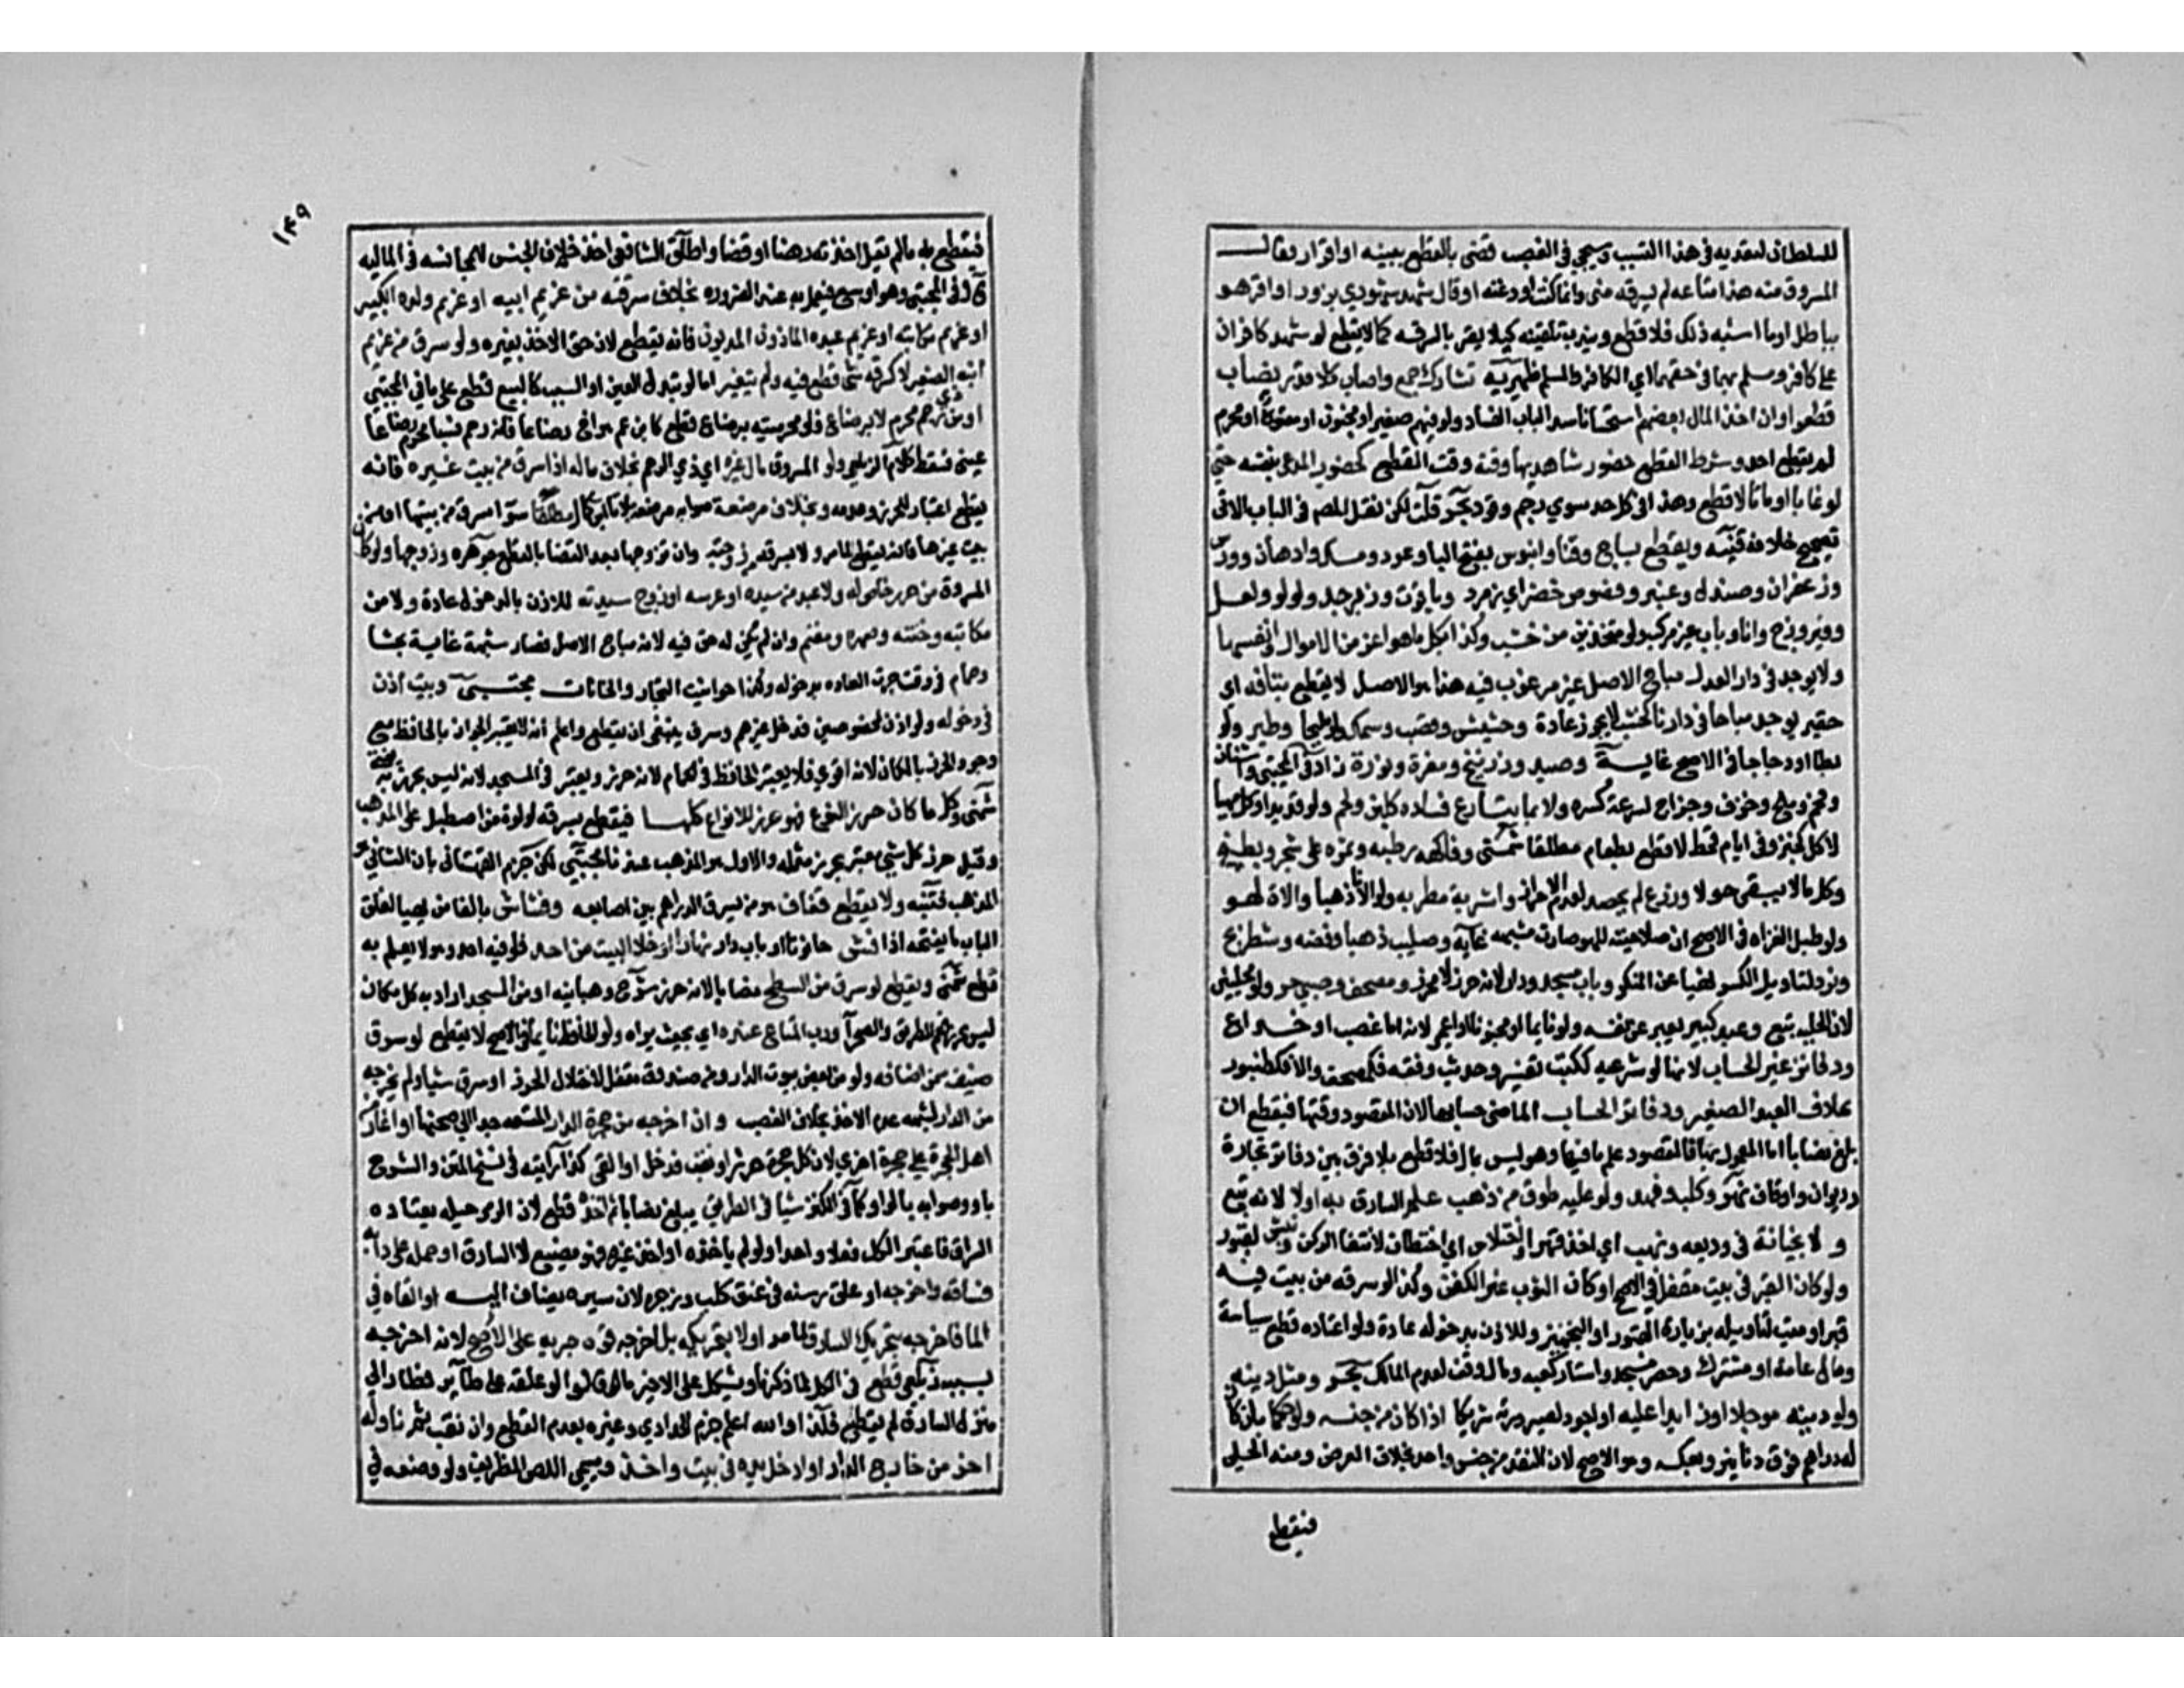 للسلطان لتعديه في هذا التسبب وسيجي في الغصب قضى بالقطع ببينه او اقرار فقال
المسروق منه هذا متاعه لم يسرقه مني وانما كنت اودعته او قال شهد شهودي بزور او اقر هو
بباطل او ما اشبه ذلك فلا قطع وندب تلقينه كيلا يقر بالسرقه كما لا يقطع لو شهد كافران
على كافر ومسلم بها في حقهما اي الكافر والمسلم ظهيريه تشارك جمع واصاب كلا قدر نصاب
قطعوا وان اخذ المال بعضهم استحسانا سد الباب الفساد ولو فيهم صغير او مجنون او معتوه او محرم
لم يقطع احد وشرط القطع حضور شاهديها وقته وقت القطع كحضور المدعي بنفسه حتى
لو غابا او ماتا لا قطع وهذا في كل حد سوي رجم وقود بحر قلت لكن نقل المص في الباب الاتي
تصحيح خلافه فتنبه ويقطع بساج وقنا وابنوس بفتح البا وعود ومسك وادهان وورس
وزعفران وصندل وعنبر وفصوص خضر اي زمرد وياقوت وزبرجد ولولو ولعل
وفيروزج وانا وباب غير مركب ولو متخذين من خشب وكذا بكل ما هو اعز من الاموال وانفسها
ولا يوجد في دار العدل مباح الاصل غير مرغوب فيه هذا هو الاصل لا يقطع بتافه اي
حقير يوجد مباحا في دارنا كخشب لا يحرز عادة وحشيش وقصب وسمك ولو مليحا وطير ولو
بطا او دجاجا في الاصح غايه وصيد وزرنيخ ومغرة ونورة زاد في المجتبى واشنان
وفحم وملح وخزف وزجاج لسرعة كسره ولا بما يتسارع فساده كلبن ولحم ولو قديدا وكل مهيا
لاكل كخبز وفي ايام قحط لا قطع بطعام مطلقا شمني وفاكهه رطبه وثمره على شجر وبطيخ
وكل ما لا يبقى حولا وزرع لم يحصد لعدم الاحراز واشربة مطربه ولو الانا ذهبا والات لهو
ولو طبل الغزاه في الاصح لان صلاحيته للهو صارت شبهه غايه وصليب ذهب او فضه وشطرنج
ونرد لتاويل الكسر نهيا عن المنكر وباب مسجد ودار لانه حرز لا محرز ومصحف وصبي حر ولو محليين
لان الحليه تبع وعبد كبير يعبر عن نفسه ولو نايما او مجنونا او اعمى لانه اما غصب او خداع
ودفاتر غير الحساب لانها لو شرعيه ككتب تفسير وحديث وفقه فكمصحف والا فكطنبور
بخلاف العبد الصغير ودفاتر الحساب الماضي حسابها لان المقصود ورقها فيقطع ان
بلغ نصابا اما المعمول بها فالمقصود علم ما فيها وهو ليس بمال فلا قطع بلا فرق بين دفاتر تجارة
وديوان واوقاف نهر وكلب وفهد ولو عليه طوق من ذهب علم السارق به اولا لانه تبع
ولا بخيانة في وديعه ونهب اي اخذ قهرا واختلاس اي اختطاف لانتفا الركن ونبش لقبور
ولو كان القبر في بيت مقفل في الاصح او كان الثوب غير الكفن وكذا لو سرقه من بيت فيه
قبر او ميت لتاويله بزيارة القبور او التجهيز وللاذن بدخوله عادة ولو اعتاده قطع سياسة
ومال عامة او مشترك وحصر مسجد واستار كعبه ومال وقف لعدم المالك بحر ومثل دينه
ولو دينه موجلا او زايدا عليه او اجود لصيرورته شريكا اذا كان من جنسه ولو حكما بان كان
له دراهم فسرق دنانير وبعكسه وهو الاصح لان النقدين جنس واحد بخلاف العرض ومنه الحلي
فيقطع
١٤٩
فيقطع به ما لم يقل اخذته رهنا او قضا واطلق الشافعي اخذ خلاف الجنس للمجانسه في الماليه
قال في المجتبى وهو اوسع فيعمل به عند الضروره بخلاف سرقته من غريم ابيه او غريم ولده الكبير
او غريم مكاتبه او غريم عبده الماذون المديون فانه يقطع لان حق الاخذ لغيره ولو سرق من غريم
ابنه الصغير لا كسرقه شي قطع فيه ولم يتغير اما لو تبدل العين او السبب كالبيع قطع على ما في المجتبى
او من ذي رحم محرم لا برضاع فلو محرميته برضاع قطع كابن عم هو اخ رضاعا فانه رحم نسبا محرم رضاعا
عيني فسقط كلام الزيلعي ولو المسروق مال غيره اي ذي الرحم بخلاف ماله اذا سرق من بيت غيره فانه
يقطع اعتبارا للحرز وعدمه وبخلاف مرضعة صوابه مرضعته بلا تا ابن كمال مطلقا سوا سرق من بيتها او من
بيت غيرها فانه يقطع لما مر ولا بسرقه من زوجته وان تزوجها بعد القضا بالقطع جوهره وزوجها ولو كان
المسروق من حرز خاص له ولا عبد من سيده او عرسه او زوج سيدته للاذن بالدخول عادة ولا من
مكاتبه وختنه وصهره ومغنم وان لم يكن له حق فيه لانه مباح الاصل فصار شبهة غاية بحثا
وحمام في وقت جرت العاده بدخوله وكذا حوانيت التجار والخانات مجتبى وبيت اذن
في دخوله ولو اذن لمخصوصين فدخل غيرهم وسرق ينبغي ان يقطع واعلم انه لا يعتبر الحرز بالحافظ مع
وجود الحرز بالمكان لانه اقوى فلا يعتبر الحافظ في الحمام لانه حرز ويعتبر في المسجد لانه ليس بحرز به يفتى
شمني وكل ما كان حرزا لنوع فهو حرز للانواع كلها فيقطع بسرقه لولوة من اصطبل على المذهب
وقيل حرز كل شي معتبر بحرز مثله والاول هو المذهب عندنا مجتبى لكن جزم القهستاني بان الثاني هو
المذهب فتنبه ولا يقطع قفاف هو من يسرق الدراهم بين اصابعه وفشاش بالفا من يهيا لغلق
الباب ما يفتحه اذا فش حانوتا او باب دار نهارا وخلا البيت من احد فلو فيه احد وهو لا يعلم به
قطع شمني ويقطع لو سرق من السطح نصابا لانه حرز شرح وهبانيه او من المسجد اراد به كل مكان
ليس بحرز فعم الطريق والصحرا ورب المتاع عنده اي بحيث يراه ولو الحافظ نايما في الاصح لا يقطع لو سرق
ضيف من اضافه ولو من بعض بيوت الدار ومن صندوق مقفل لاختلال الحرز او سرق شيا ولم يخرجه
من الدار لشبهه عدم الاخذ بخلاف الغصب وان اخرجه من حجرة الدار المتسعه جدا الى صحنها او اغار من
اهل الحجرة على حجرة اخري لان كل حجرة حرز او نقب فدخل او القى كذا رايته في نسخ المتن والشرح
باو وصوابه بالواو كما في الكنز شيا في الطريق يبلغ نصابا ثم اخذه قطع لان الرمي حيله يعتاده
السراق فاعتبر الكل فعلا واحدا ولو لم ياخذه او اخذه غيره فهو مضيع لا السارق او حمله على دابه
فساقه واخرجه او علق رسنه في عنق كلب وزجره لان سيره يضاف اليه او القاه في
الما فاخرجه بتحريك السارق لما مر او لا بتحريكه بل اخرجه قوه جريه على الاصح لانه اخرجه
بسببه زيلعي قطع في الكل لما ذكرنا ويشكل على الاخير ما قالوا لو علقه على طاير فطار الى
منزل السارق لم يقطع فلذا والله اعلم جزم الحدادي وغيره بعدم القطع وان نقب ثم ناوله
اخر من خارج الدار او ادخل يده في بيت واخذ ويسمى اللص الظريف ولو وضعه في